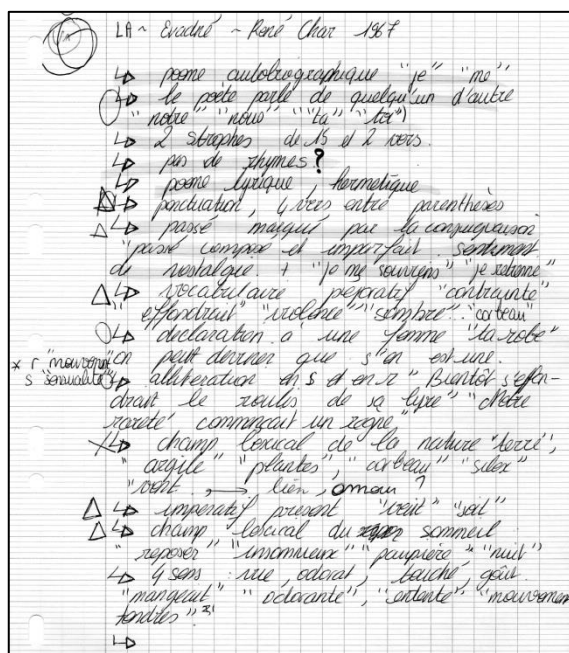 LA ~ Evadné ~ René Char 1967
↳ poème autobiographique "je" "me"
↳ le poète parle de quelqu'un d'autre
"notre" "nous" "ta" "toi")
↳ 2 strophes de 15 et 2 vers.
↳ pas de rhymes?
↳ poème lyrique, hermétique
↳ ponctuation, 4 vers entre parenthèses
↳ passé marqué par la conjuguaison
"passé composé et imparfait. sentiment
de nostalgie. + "je me souviens"
↳ vocabulaire péjoratif "contrainte"
"effondrait" "violence" "sombre" "corbeau"
↳ déclaration à une femme "ta robe"
on peut deviner que s'en est une.
* r "mouvement"
s "sensualité"
↳ allitération en s et en r "Bientôt s'effon-
drait le roulis de sa lyre" "Notre
rareté commençait un règne"
↳ champ lexical de la nature "terre",
"argile" "plantes", "corbeau" "silex"
"vent → lien, amour?
↳ impératif présent "soit"
↳ champ lexical du sommeil
"reposer" "paupière" "nuit"
↳ 4 sens : vue, odorat, touché, goût.
"mangeait" "odorante", "mouvements
tendres"
↳